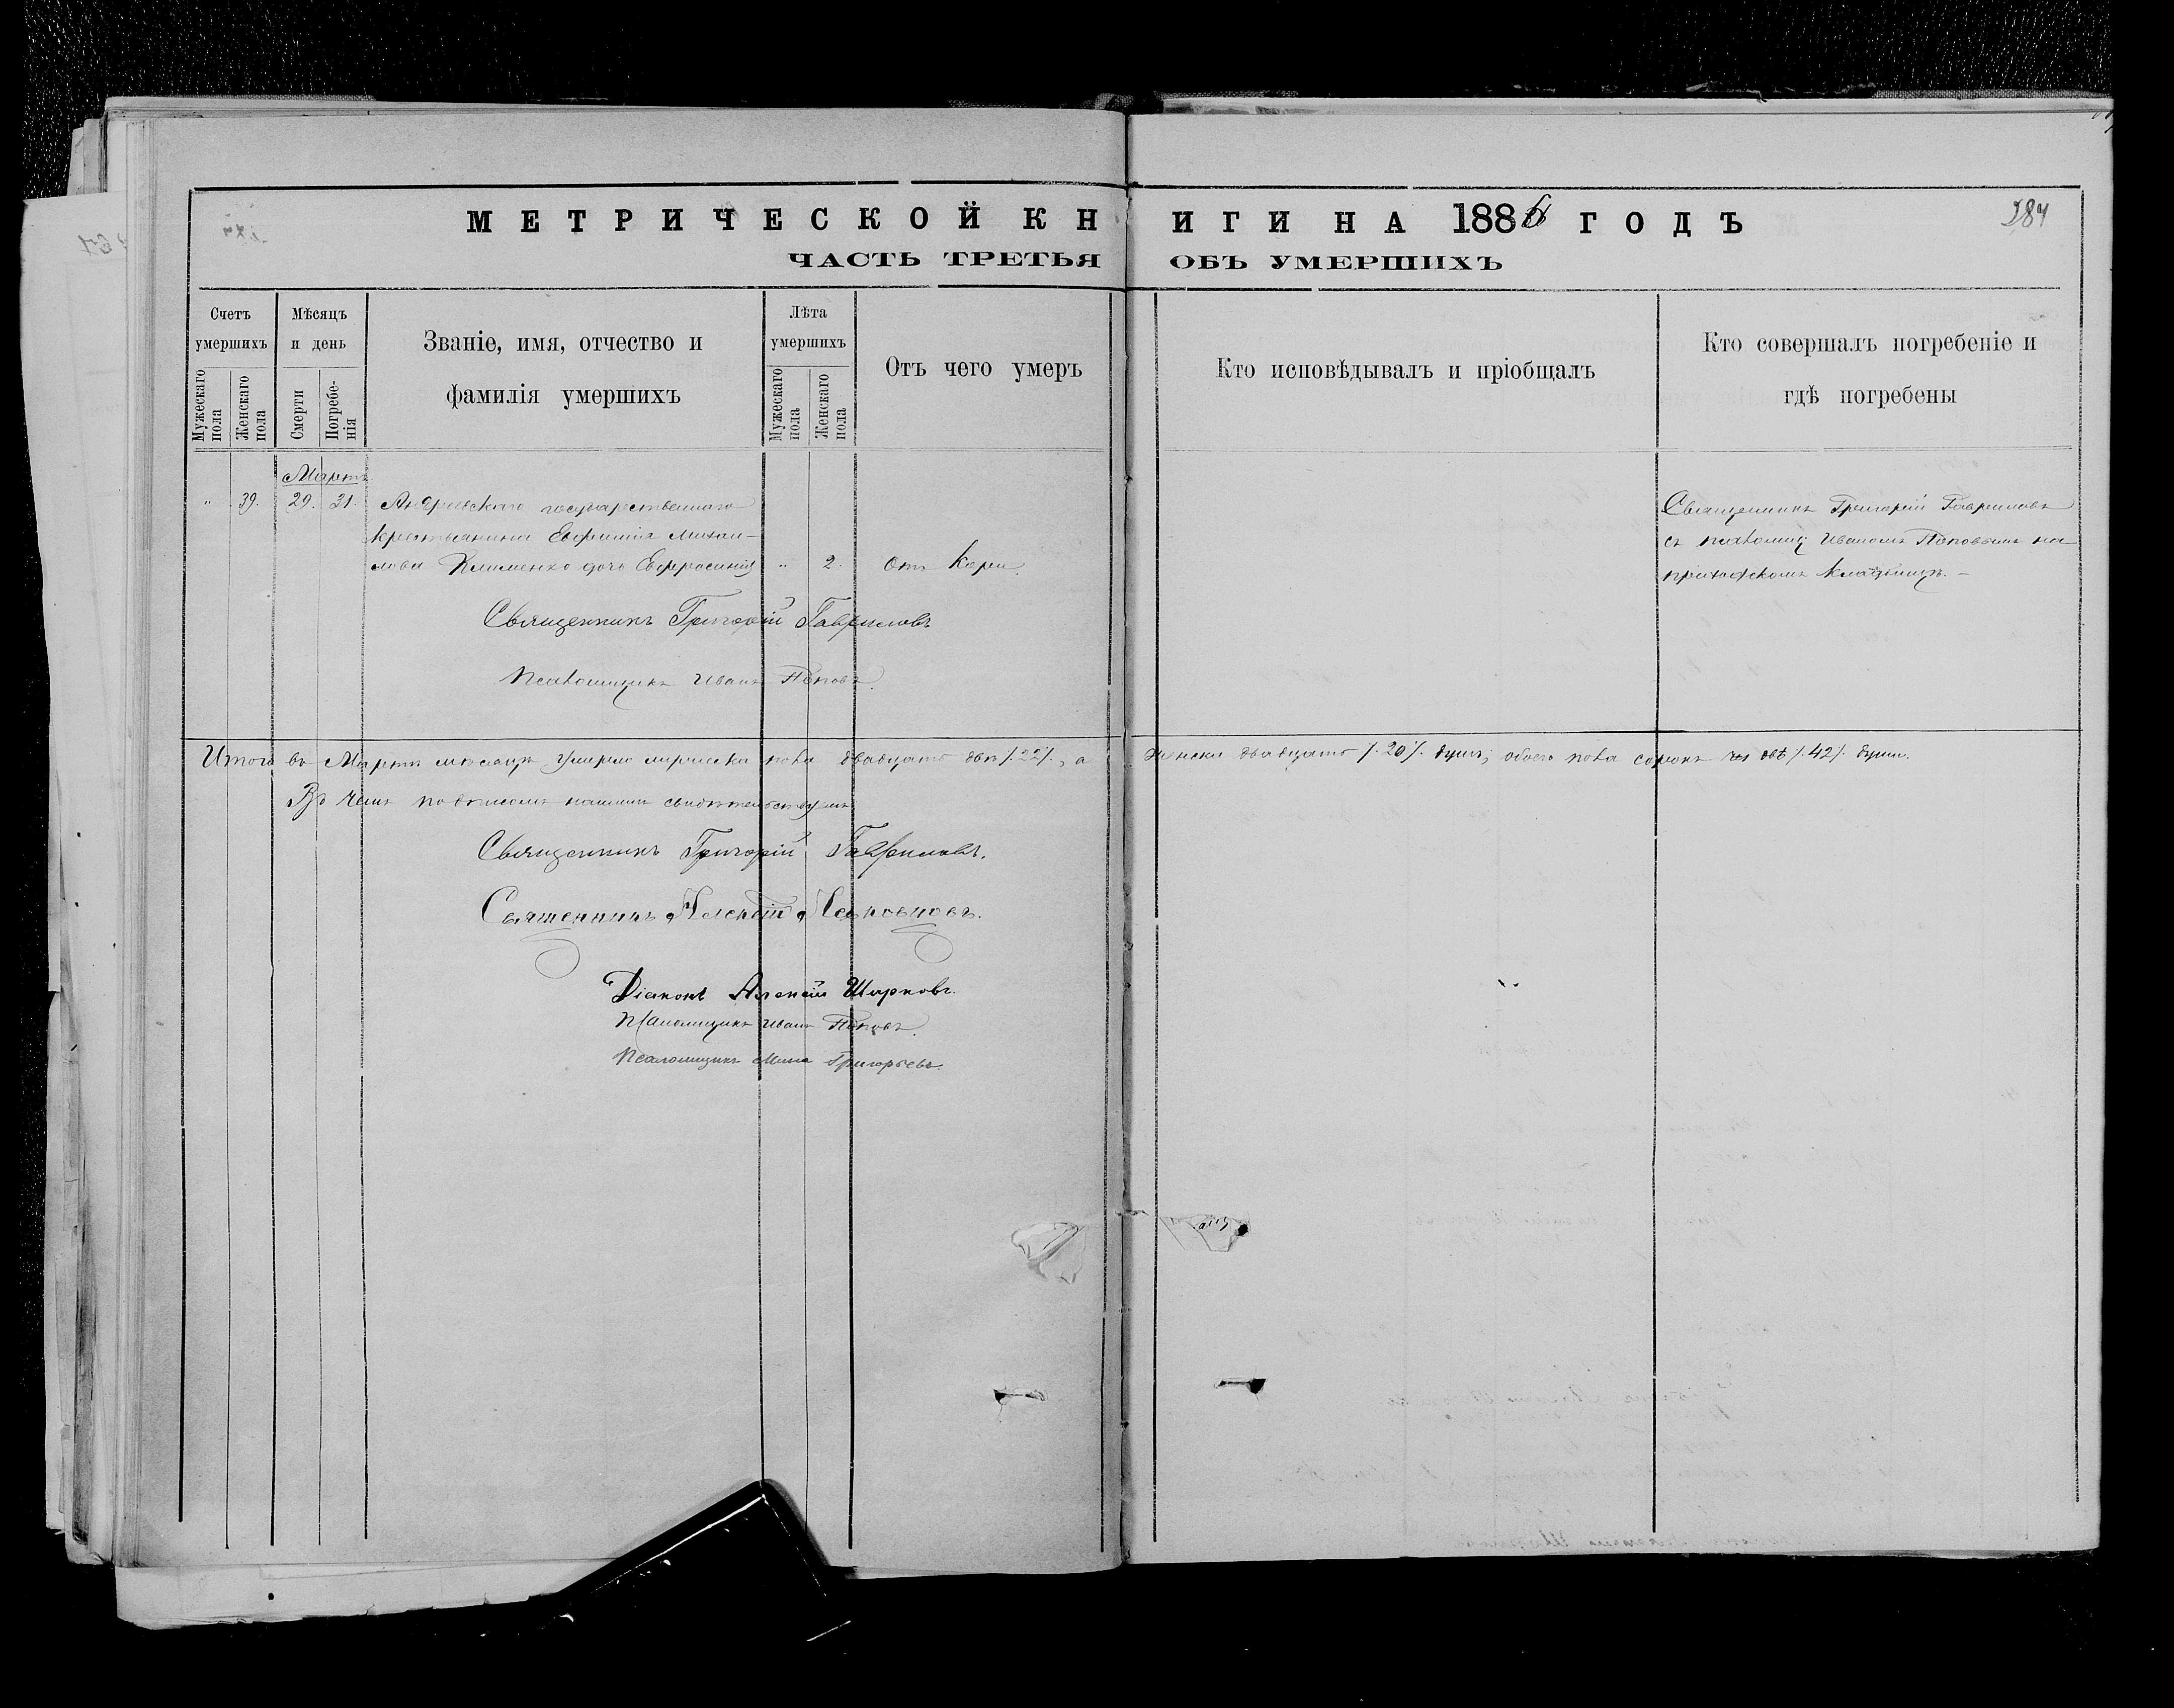 МЕТРИЧЕСКОЙ КНИГИ НА 1886 ГОДЪ
284
ЧАСТЬ ТРЕТЬЯ ОБЪ УМЕРШИХЪ
Счетъ умершихъ
Мужескаго пола
Женскаго пола
Мѣсяцъ и день
Смерти
Погребенія
Званіе, имя, отчество и
фамилія умершихъ
Лѣта умершихъ
Мужескаго пола
Женскаго пола
Отъ чего умеръ
Кто исповѣдывалъ и пріобщалъ
Кто совершалъ погребеніе и
гдѣ погребены
Мартъ
" 39. 29. 31. Андреевскаго государственнаго
крестьянина Евфимія Михаи-
лова Клименко дочь Евфросинія " 2. отъ Кори.
Священникъ Григорій Гавриловъ
съ псаломщ. Иваномъ Поповымъ на
приходскомъ кладбищѣ. –
Священникъ Григорій Гавриловъ
Псаломщикъ Иванъ Поповъ.
Итого въ Мартѣ мѣсяцѣ умерло мужеска пола двадцать два /.22/., а женска двадцать /.20/. душъ; обоего пола сорокъ двѣ /.42/. души.
Въ чемъ подписомъ нашимъ свидѣтельствуемъ
Священникъ Григорій Гавриловъ.
Священникъ Алексѣй
Діаконъ Алексѣй Шарковъ.
Псаломщикъ Иванъ Поповъ.
Псаломщикъ Мина Григорьевъ.